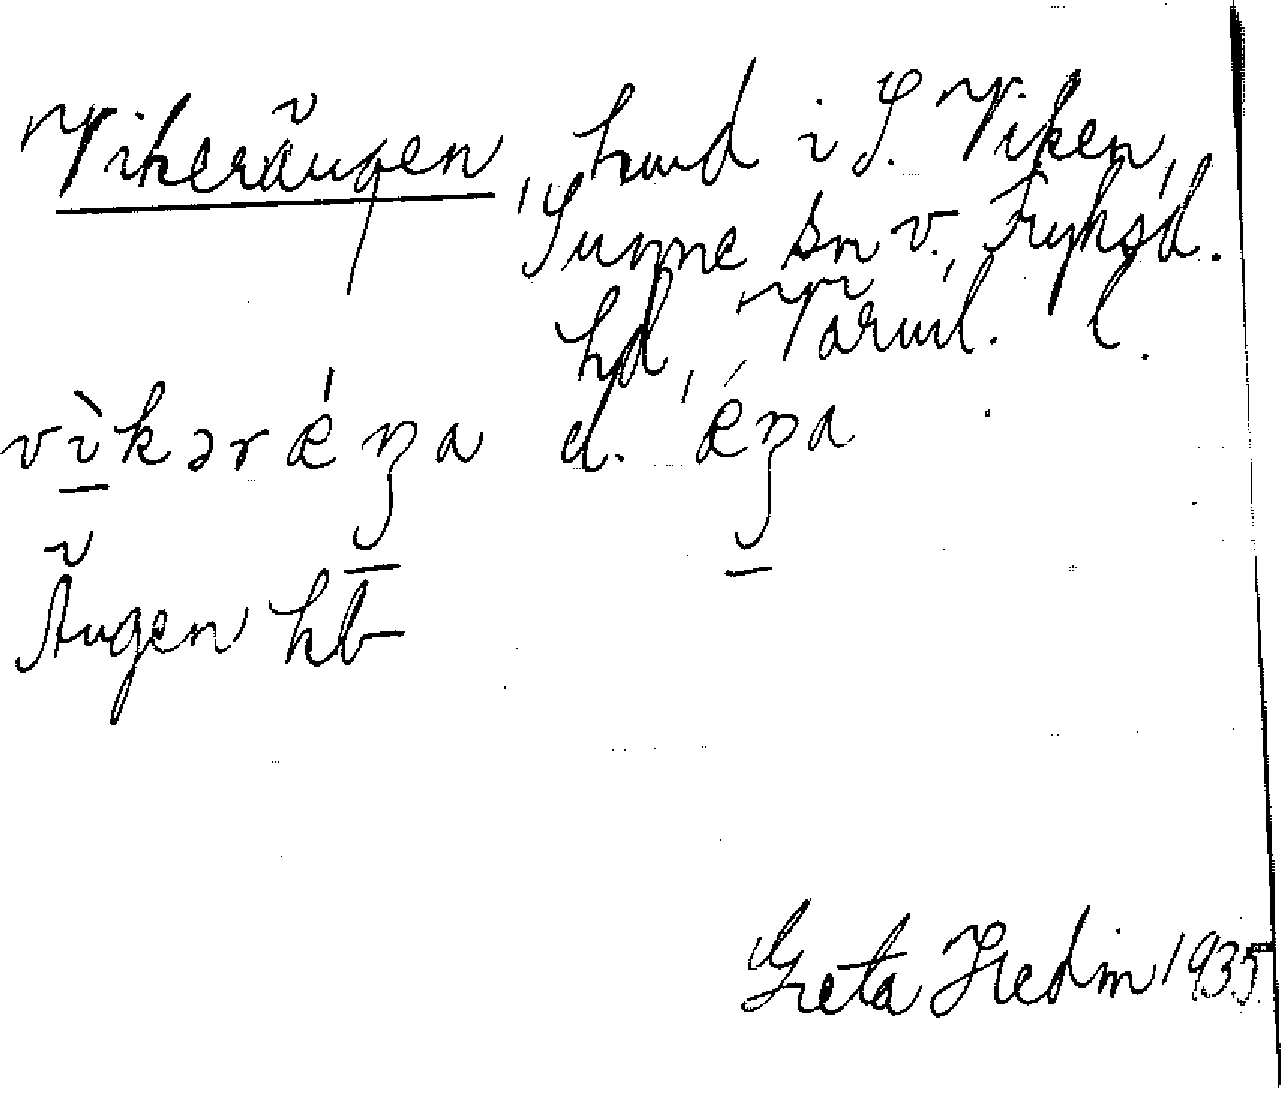 Vikeräugen, hmd i S. Viken,
Sunne sn v., Fryksd.
hd, Värml. l.
vìkərǽŋa el. ǽŋa
Äugen hb
Greta Hedin 1935